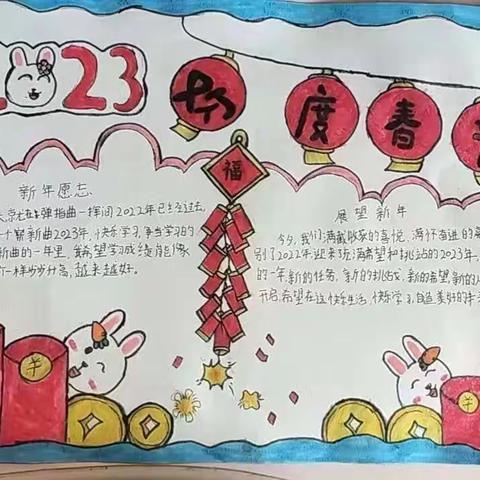 2023
欢度春
福
新年愿志
弹指曲一挥间2022年已经过去,
一个崭新曲2023年,快乐学习,争当学习的
新曲的一年里,我希望学习成绩能像
一样步步升高,越来越好。
展望新年
今夕,我们满载的喜悦,满怀奋进的
别了2022年,迎来充满希望和挑战的2023年。
的一年,新的任务,新的挑战,新的希望,新的
开启,希望在这快乐生活,快乐学习,造美好的未